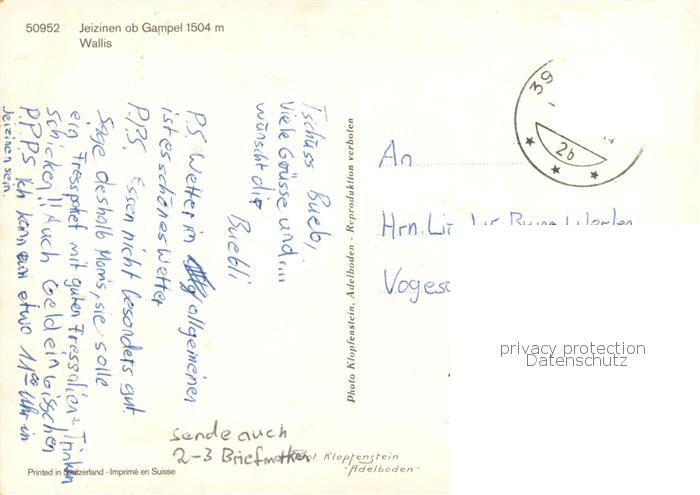 50952 Jeizinen ob Gampel 1504 m
Wallis
Tschüss Bueb,
Viele Grüsse und ...
wünscht dir
Buebli
P.S. Wetter im allgemeinen
ist es schönes Wetter
P.P.S. Essen nicht besonders gut.
Sage deshalb Mams, sie solle
ein Fresspaket mit guten Fressalien + Trinken
schicken!! Auch Geld ein bisschen
P.P.P.S Ich kann etwa 11⁰⁰ Uhr in
Jeizinen sein.
sende auch
2-3 Briefmarken
Photo Klopfenstein, Adelboden - Reproduktion verboten
39
26
An
Hrn.
Klopfenstein
-Adelboden-
Printed in Switzerland - Imprimé en Suisse
privacy protection
Datenschutz